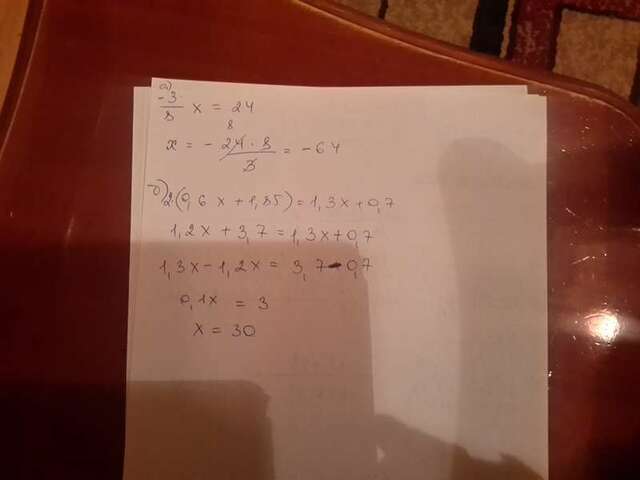 а)
-3/8 x = 24
8
x = - 24 · 8 / 3 = -64
б) 2·(0,6x+1,85)=1,3x+0,7
1,2x+3,7=1,3x+0,7
1,3x-1,2x= 3,7-0,7
0,1x = 3
x = 30